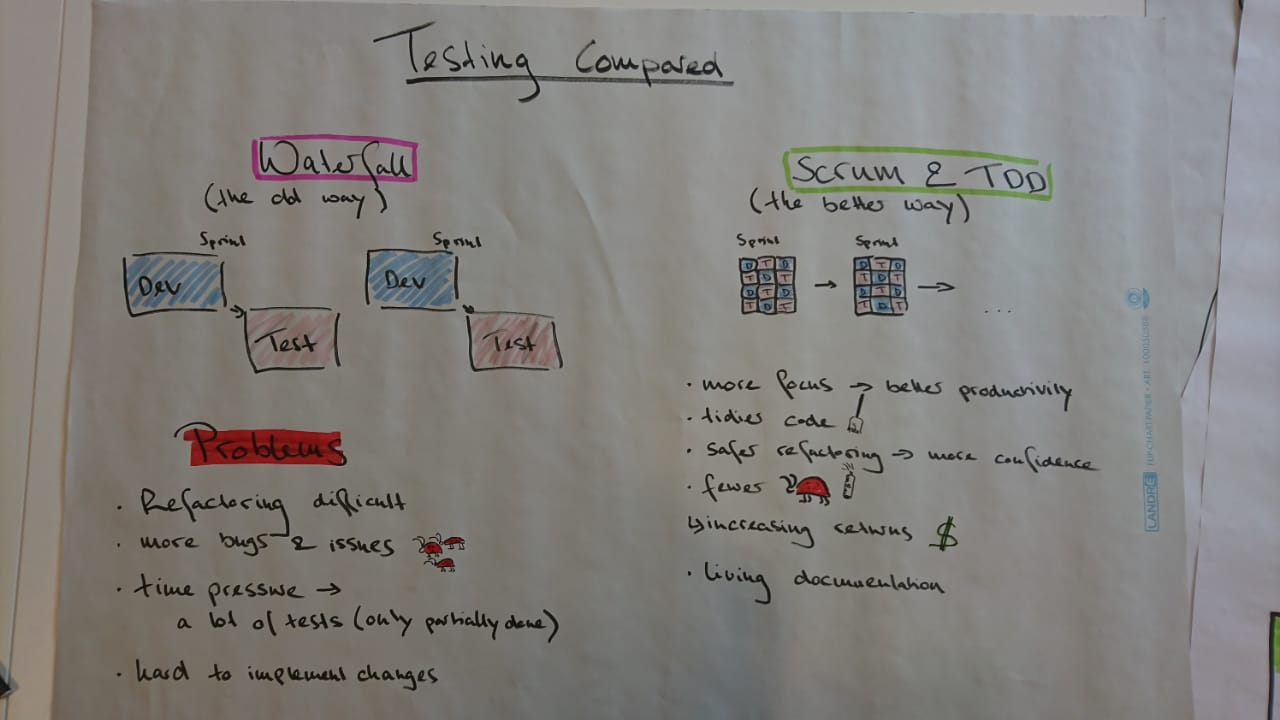 Testing Compared
Waterfall
(the old way)
Sprint
Sprint
Dev
Dev
Test
Test
Problems
· Refactoring difficult
· more bugs & issues
· time pressure →
a lot of tests (only partially done)
· hard to implement changes
Scrum & TDD
(the better way)
Sprint
Sprint
D T D
T D T
D T D
T D T
D T D
T D T
D D D
T D T
→
→
...
· more focus → better productivity
· tidier code
· safer refactoring → more confidence
· fewer
↳ increasing returns $
· living documentation
LANDRÉ FLIP-CHART-PAPER · ART.